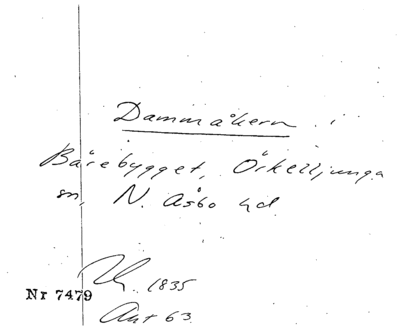 Dammåkern i
Bårebygget, Örkelljunga
sn, N. Åsbo hd.
1835
Nr 7479
Avt 63